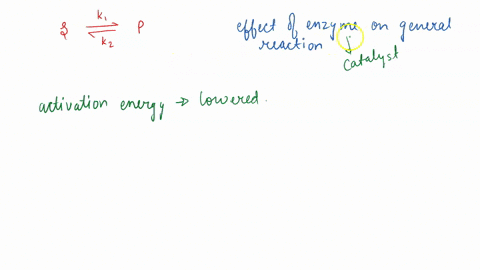 S k1 ⇌ k2 P
effect of enzyme on general
reaction ↓
Catalyst
activation energy → lowered.